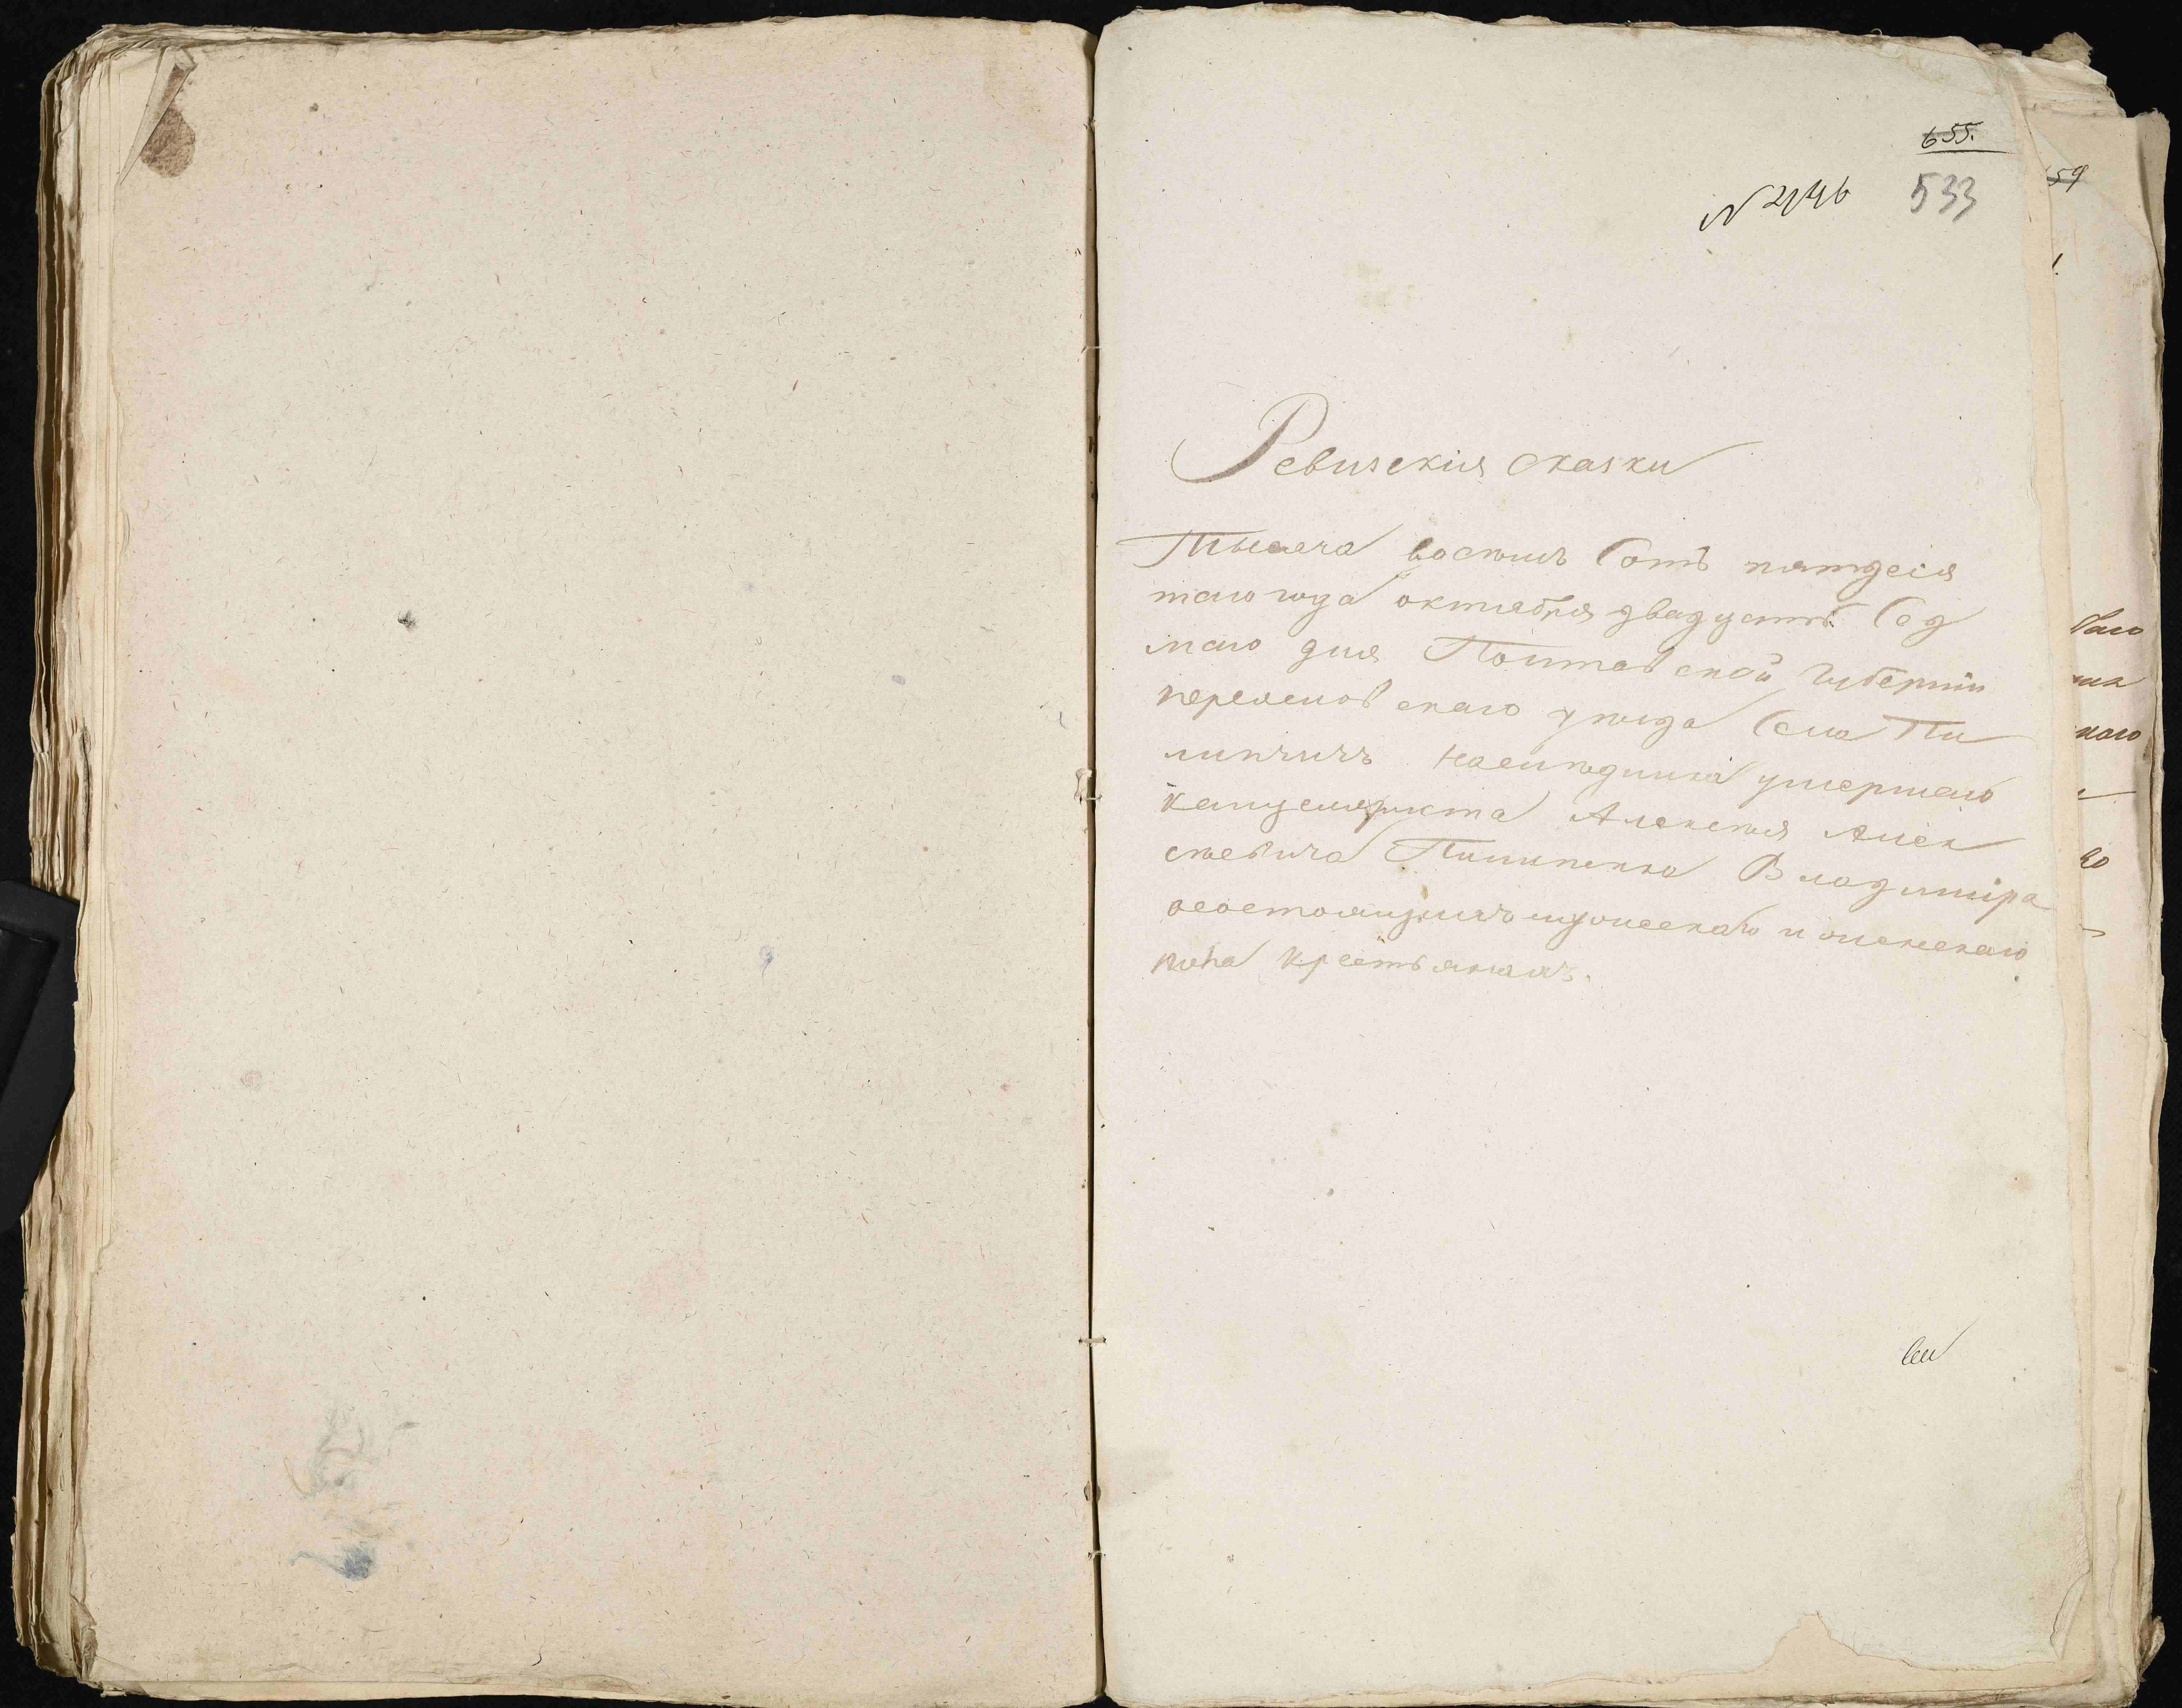 655.
N 2146 533
Ревизскія сказки
Тысеча восемь сотъ пятдеся
таго года октября двадцять сед
маго дня Полтавской губерніи
переяславскаго уѣзда села Пи
липчичъ наслѣдника умершаго
канцеляриста Алексѣя Алек
сѣевича Пилипенка Владиміра
осостоящихъ мужескаго и женскаго
пола крестьянахъ.
59